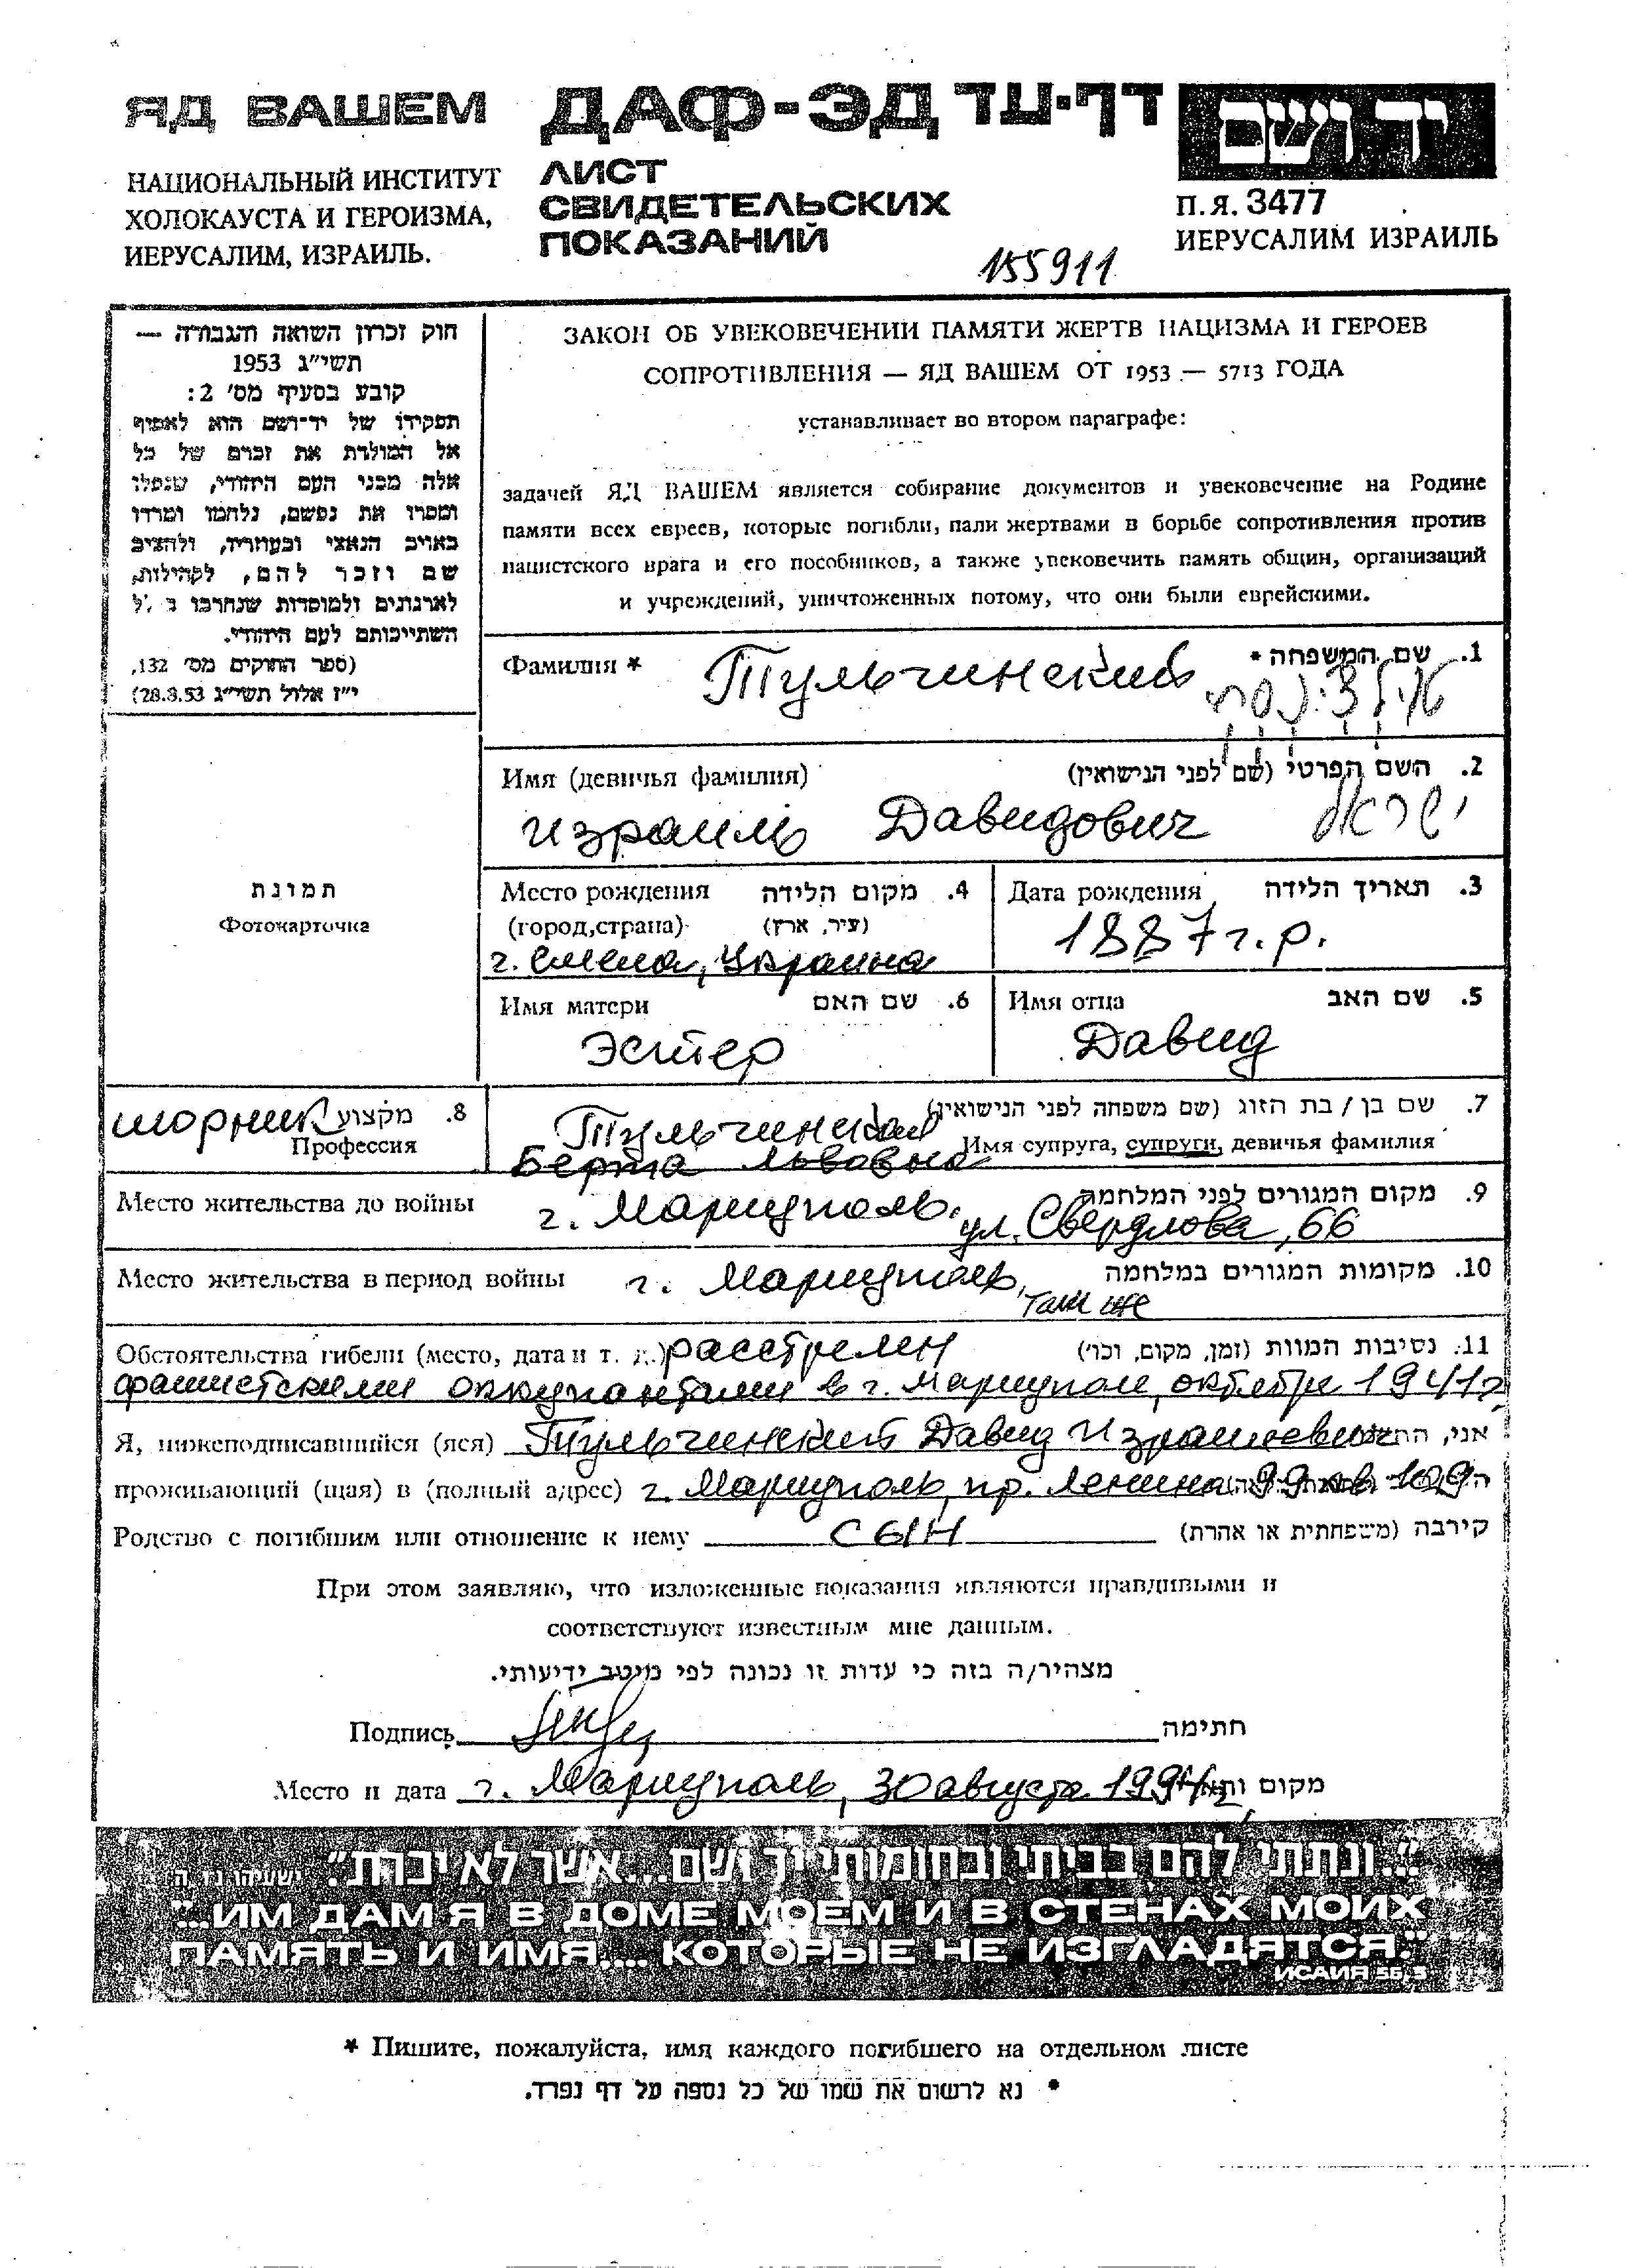 ЯД ВАШЕМ
НАЦИОНАЛЬНЫЙ ИНСТИТУТ
ХОЛОКАУСТА И ГЕРОИЗМА,
ИЕРУСАЛИМ, ИЗРАИЛЬ.
ДАФ-ЭД דף-עד
ЛИСТ
СВИДЕТЕЛЬСКИХ
ПОКАЗАНИЙ
155911
יד ושם
П.Я. 3477
ИЕРУСАЛИМ ИЗРАИЛЬ
חוק זכרון השואה והגבורה —
תשי״ג 1953
קובע בסעיף מס׳ 2:
תפקידו של יד־ושם הוא לאסוף
אל המולדת את זכרם של כל
אלה מבני העם היהודי, שנפלו
ומסרו את נפשם, נלחמו ומרדו
באויב הנאצי ובעוזריו, ולהציב
שם וזכר להם, לקהילות,
לארגונים ולמוסדות שנחרבו
השתייכותם לעם היהודי.
(ספר החוקים מס׳ 132,
י״ז אלול תשי״ג 28.8.53)
ЗАКОН ОБ УВЕКОВЕЧЕНИИ ПАМЯТИ ЖЕРТВ НАЦИЗМА И ГЕРОЕВ
СОПРОТИВЛЕНИЯ — ЯД ВАШЕМ ОТ 1953 — 5713 ГОДА
устанавливает во втором параграфе:
задачей ЯД ВАШЕМ является собирание документов и увековечение на Родине
памяти всех евреев, которые погибли, пали жертвами в борьбе сопротивления против
нацистского врага и его пособников, а также увековечить память общин, организаций
и учреждений, уничтоженных потому, что они были еврейскими.
Фамилия * Тульчинский 1. שם המשפחה *
טולצ'ינסקי
Имя (девичья фамилия) 2. השם הפרטי (שם לפני הנישואין)
Израиль Давидович ישראל
תמונת
Фотокарточка
Место рождения 4. מקום הלידה
(город,страна) (עיר, ארץ)
г. Смела, Украина
Дата рождения 3. תאריך הלידה
1887 г.р.
Имя матери 6. שם האם
Эстер
Имя отца 5. שם האב
Давид
шорник 8. מקצוע
Профессия
Тульчинская 7. שם בן / בת הזוג (שם משפחה לפני הנישואין)
Берта Львовна Имя супруга, супруги, девичья фамилия
Место жительства до войны г. Мариуполь. 9. מקום המגורים לפני המלחמה
ул. Свердлова, 66
Место жительства в период войны г. Мариуполь, 10. מקומות המגורים במלחמה
там же
Обстоятельства гибели (место, дата и т. д.) расстрелян 11. נסיבות המוות (זמן, מקום, וכו׳)
фашистскими оккупантами в г. Мариуполе, октябре 1941г.
Я, нижеподписавшийся (яся) Тульчинский Давид Израилевич אני,
проживающий (щая) в (полный адрес) г. Мариуполь, пр. Ленина 99 кв 109
Родство с погибшим или отношение к нему СЫН קירבה (משפחתית או אחרת)
При этом заявляю, что изложенные показания являются правдивыми и
соответствуют известным мне данным.
מצהיר/ה בזה כי עדות זו נכונה לפי מיטב ידיעותי.
Подпись חתימה
Место и дата г. Мариуполь, 30 августа 1994г. מקום
"...ונתתי להם בביתי ובחומותי יד ושם...אשר לא יכרת." ישעיהו נו ה
"...ИМ ДАМ Я В ДОМЕ МОЕМ И В СТЕНАХ МОИХ
ПАМЯТЬ И ИМЯ.... КОТОРЫЕ НЕ ИЗГЛАДЯТСЯ."
ИСАИЯ 56/5
* Пишите, пожалуйста, имя каждого погибшего на отдельном листе
* נא לרשום את שמו של כל נספה על דף נפרד.